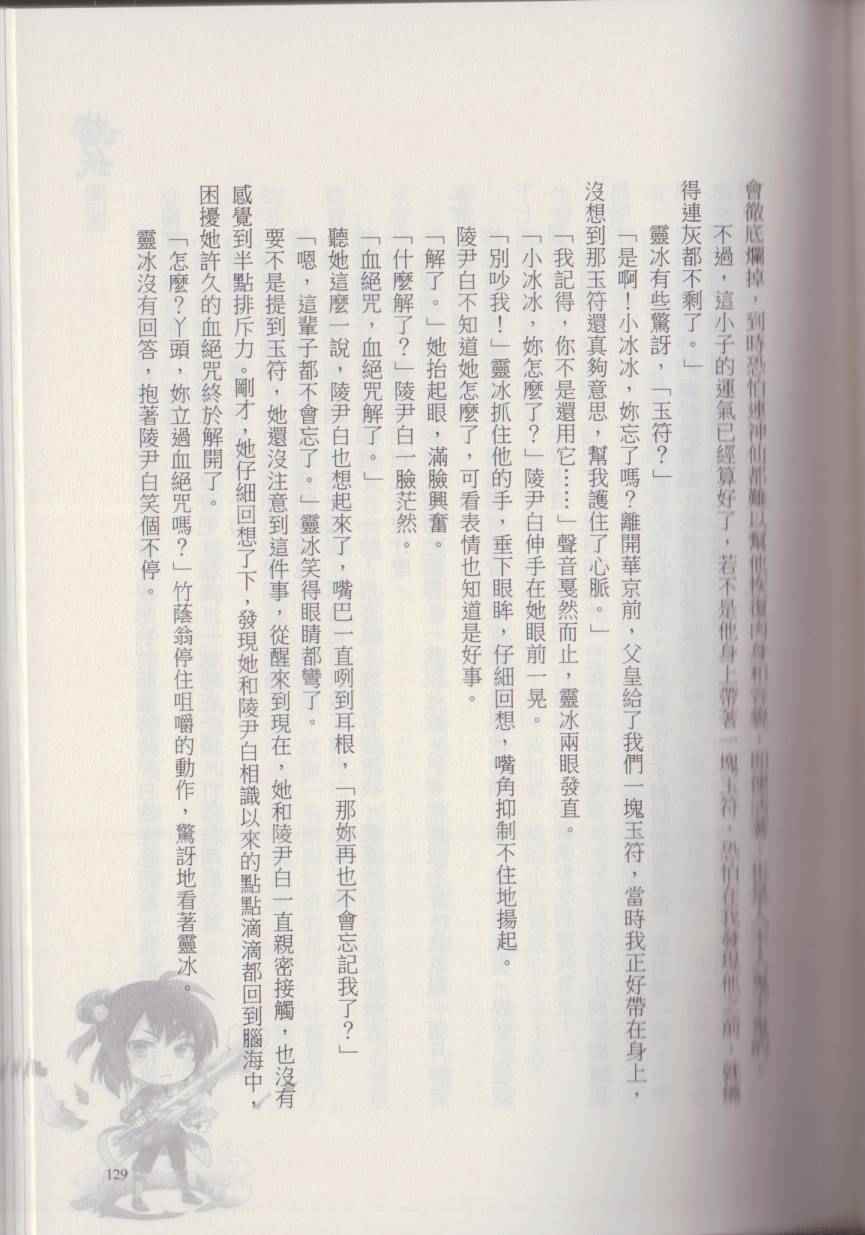 會徹底爛掉，到時恐怕連神仙都難以幫他恢復肉身和容貌，
不過，這小子的運氣已經算好了，若不是他身上帶著一塊玉符，恐怕在我發現他之前，就燒
得連灰都不剩了。」
靈冰有些驚訝，「玉符？」
「是啊！小冰冰，妳忘了嗎？離開華京前，父皇給了我們一塊玉符，當時我正好帶在身上，
沒想到那玉符還真夠意思，幫我護住了心脈。」
「我記得，你不是還用它……」聲音戛然而止，靈冰兩眼發直。
「小冰冰，妳怎麼了？」陵尹白伸手在她眼前一晃。
「別吵我！」靈冰抓住他的手，垂下眼眸，仔細回想，嘴角抑制不住地揚起。
陵尹白不知道她怎麼了，可看表情也知道是好事。
「解了。」她抬起眼，滿臉興奮。
「什麼解了？」陵尹白一臉茫然。
「血絕咒，血絕咒解了。」
聽她這麼一說，陵尹白也想起來了，嘴巴一直咧到耳根，「那妳再也不會忘記我了？」
「嗯，這輩子都不會忘了。」靈冰笑得眼睛都彎了。
要不是提到玉符，她還沒注意到這件事，從醒來到現在，她和陵尹白一直親密接觸，也沒有
感覺到半點排斥力。剛才，她仔細回想了下，發現她和陵尹白相識以來的點點滴滴都回到腦海中，
困擾她許久的血絕咒終於解開了。
「怎麼？丫頭，妳立過血絕咒嗎？」竹蔭翁停住咀嚼的動作，驚訝地看著靈冰。
靈冰沒有回答，抱著陵尹白笑個不停。
129